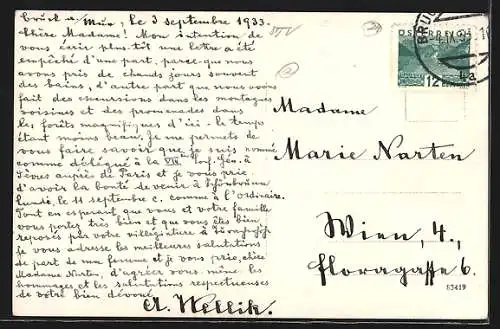 Bruck a. Mur, Le 3 septembre 1933.
Chère Madame! Mon intention de
vous écrir plus tôt une lettre a été
empêché d'une part, parce que nous
avons pris de chauds jours souvent
des bains, d'autre part que nous avons
fait des excursions dans les montagnes
voisines et des promenades dans
les forêts magnifiques d'ici. Le temps
étant moins beau, je me permets de
vous faire savoir que je suis nommé
comme délégué à la VIIe Conf. Gén. à
Sèvres auprès de Paris et je vous prie,
d'avoir la bonté de venir à Schönbrunn
Lundi, le 11 septembre c. comme à l'ordinaire.
Tout en esperant que vous et votre famille
vous portez très bien et que vous êtes bien
reposés par votre villégiature à
je vous adresse les meilleures salutations
de part de ma femme et je vous prie, chère
Madame Narten, d'agréer vous même les
hommages et les salutations respectueuses
de votre bien dévoué
A. Wellik.
Madame
Marie Narten
Wien, 4.,
Floragasse 6.
ÖSTERREICH
12
BRU
4a
83419